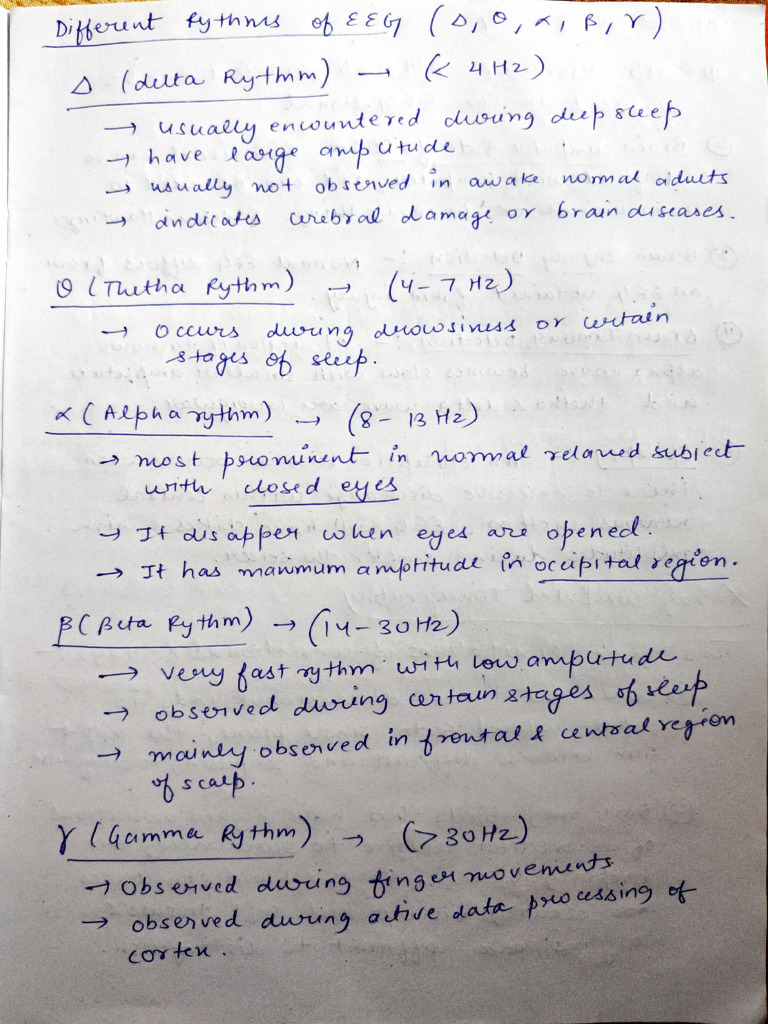 Different Rythms of EEG (Δ, θ, α, β, γ)
Δ (delta Rythmm) → (< 4 Hz)
→ usually encountered during deep sleep
→ have large amplitude
→ usually not observed in awake normal adults
→ indicates cerebral damage or brain diseases.
θ (Thetha Rythm) → (4-7 Hz)
→ occurs during drowsiness or certain
stages of sleep.
α (Alpha rythm) → (8-13 Hz)
→ most prominent in normal relaxed subject
with closed eyes
→ It disapper when eyes are opened.
→ It has maximum amptitude in occipital region.
β (Beta Rythm) → (14-30 Hz)
→ very fast rythm with low amplitude
→ observed during certain stages of sleep
→ mainly observed in frontal & central region
of scalp.
γ (Gamma Rythm) → (>30 Hz)
→ observed during finger movements
→ observed during active data processing of
cortex.